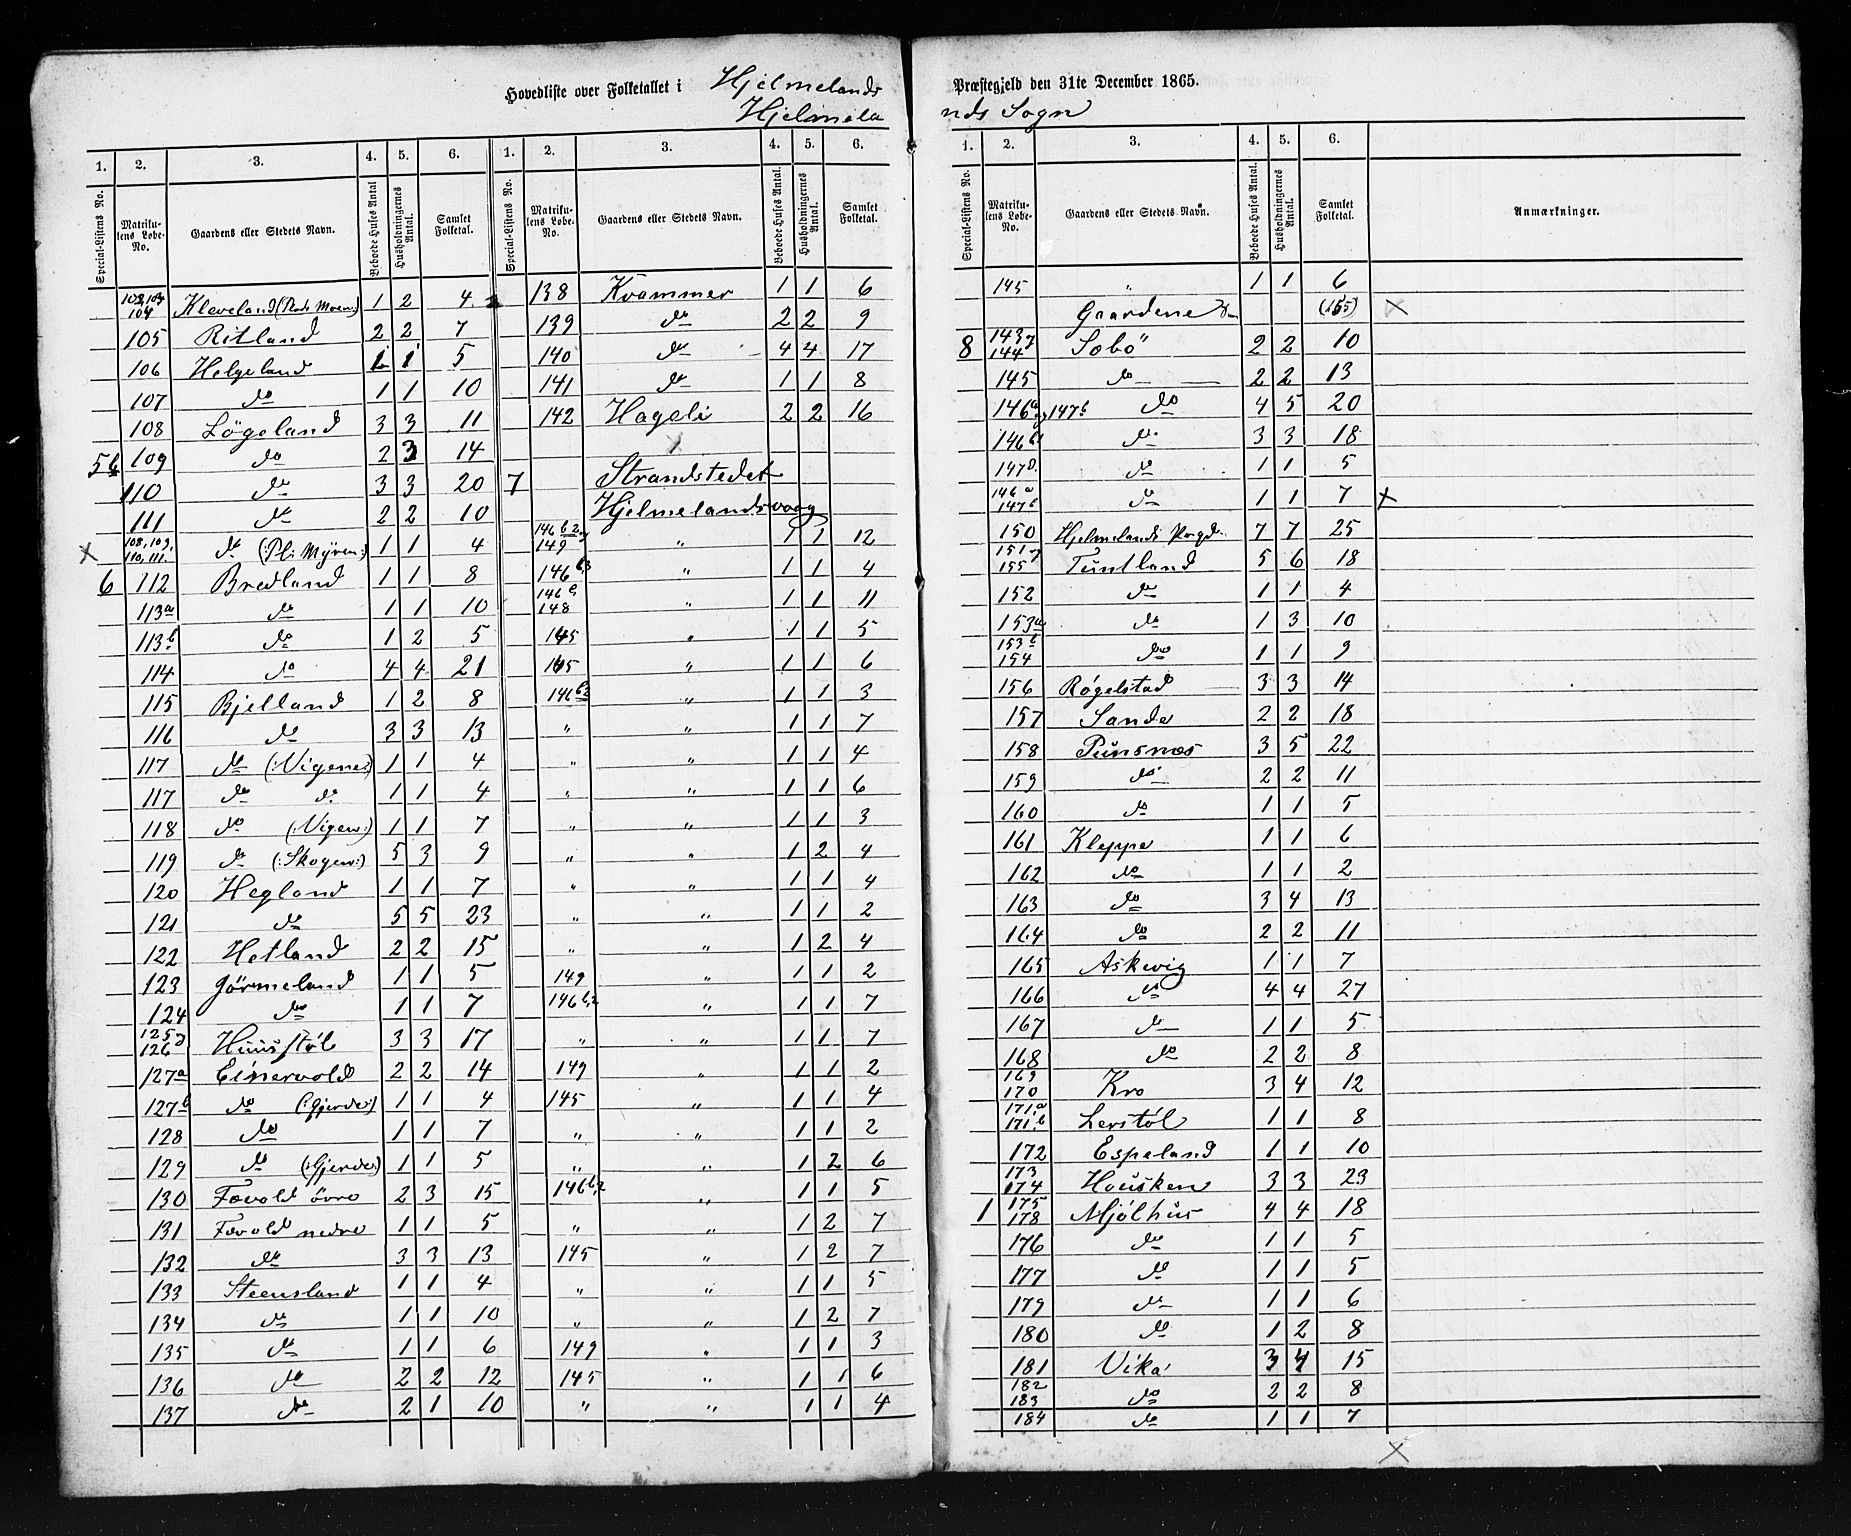 Hovedliste over Folketallet i Hjelmelands Præstegjeld den 31te December 1865.
Hjelmelands Sogn
1. 2. 3. 4. 5. 6. 1. 2. 3. 4. 5. 6.
Special-Listens No. Matrikulens Løbe-No. Gaardens eller Stedets Navn. Beboede Huses Antal Husholdningernes Antal. Samlet Folketal. Special-Listens No. Matrikulens Løbe-No. Gaardens eller Stedets Navn. Beboede Huses Antal. Husholdningernes Antal. Samlet Folketal.
102,103, 104 Kleveland (Plads Moen:) 1 2 4
105 Ritland 2 2 7
106 Helgeland 1 1 5
107 do 1 1 10
108 Lögeland 3 3 11
5b 109 do 2 3 14
110 do 3 3 20
111 do 2 2 10
108, 109, 110, 111. do (:Pl: Myren:) 1 1 4
6 112 Bredland 1 1 8
113a do 1 1 10
113b do 1 2 5
114 do 4 4 21
115 Bjelland 1 2 8
116 do 3 3 13
117 do (:Vigene:) 1 1 4
117 do do 1 1 4
118 do (:Vigen:) 1 1 7
119 do (:Skogen:) 5 3 9
120 Hegland 1 1 7
121 do 5 5 23
122 Hetland 2 2 15
123 Görmeland 1 1 5
124 do 1 1 7
125 og 126 Huusstöl 3 3 17
127a Einervold 2 2 14
127b do (:Gjerde:) 1 1 4
128 do 1 1 7
129 do (:Gjerde:) 1 1 5
130 Fævold övre 2 3 15
131 Fævold nedre 1 1 5
132 do 3 3 13
133 Steensland 1 1 4
134 do 1 1 10
135 do 1 1 6
136 do 2 2 12
137 do 2 1 10
138 Kvammer 1 1 6
139 do 2 2 9
140 do 4 4 17
141 do 1 1 8
142 Hageli 2 2 16
7 Strandstedet
Hjelmelandsvaag
146 b 2 og 149 " 1 1 12
146 b,3 " 1 1 4
146 b, 148 " 1 1 11
145 " 1 1 5
145 " 1 1 6
146 b3 " 1 1 3
" " 1 1 7
" " 1 1 4
" " 1 1 6
" " 1 1 3
" " 1 2 4
" " 1 1 4
" " 1 1 2
" " 1 2 4
149 " 1 1 2
146 b,2 " 1 1 7
" " 1 1 7
149 " 1 1 2
145 " 1 1 4
" " 1 1 2
" " 1 2 6
146 b,2 " 1 1 5
" " 1 2 7
145 " 1 2 7
" " 1 1 5
" " 1 2 7
149 " 1 1 3
145 " 1 1 6
" " 1 1 4
1. 2. 3. 4. 5. 6.
Special-Listens No. Matrikulens Løbe-No. Gaardens eller Stedets Navn. Beboede Huses Antal. Husholdningernes Antal. Samlet Folketal. Anmærkninger.
145 " 1 1 6
Gaardene (155)
8 143 og 144 Sobö 2 2 10
145 do 2 2 13
146a og 147b do 4 5 20
146 b1 do 3 3 18
147 do 1 1 5
146 a 147 b do 1 1 7
150 Hjelmelands Prgd. 7 7 25
151 og 155 Tuntland 5 6 18
152 do 1 1 4
153a do 1 3 10
153 b 154 do 1 1 9
156 Røgelstad 3 3 14
157 Sande 2 2 18
158 Pünsnæs 3 5 22
159 do 2 2 11
160 do 1 1 5
161 Kleppe 1 1 6
162 do 1 1 2
163 do 3 4 13
164 do 2 2 11
165 Askevig 1 1 7
166 do 4 4 27
167 do 1 1 5
168 do 2 2 8
169 170 Kro 3 4 12
171,a 171,b Lerstöl 1 1 8
172 Espeland 1 1 10
173 174 Housken 3 3 23
1 175 178 Mjölhus 4 4 18
176 do 1 1 5
177 do 1 1 5
179 do 1 1 6
180 do 1 2 8
181 Vika 3 4 15
182 183 do 2 2 8
184 do 1 1 7